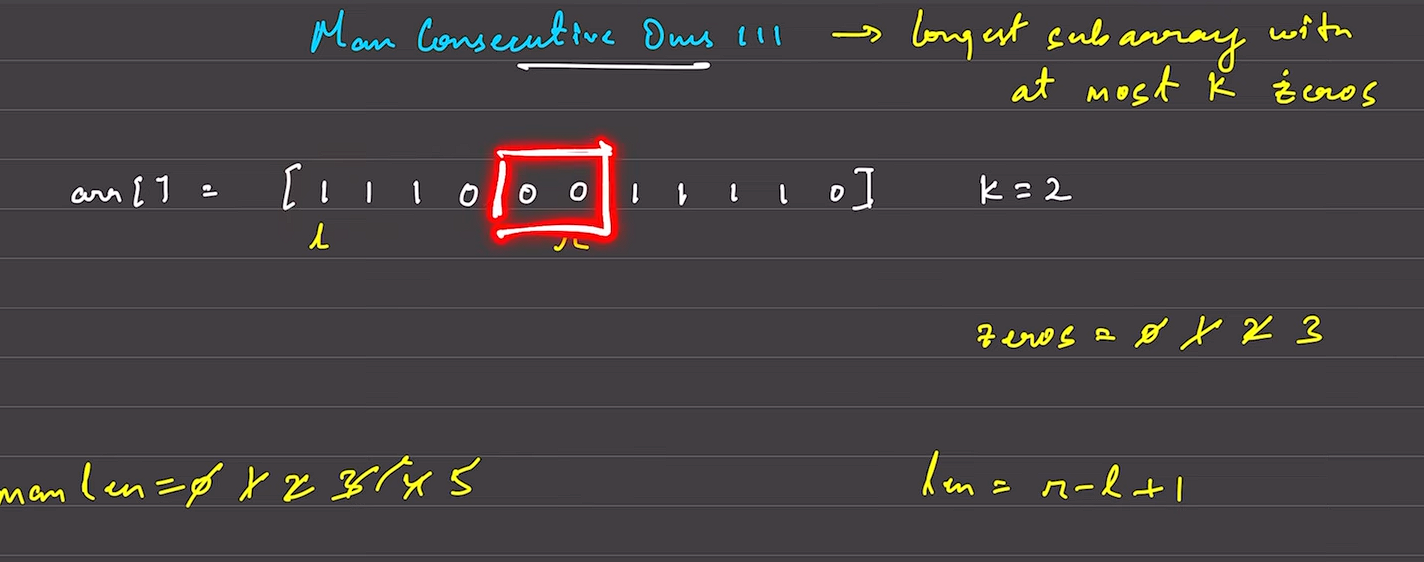 Max Consecutive Ones III → longest subarray with
at most K zeros
arr[] = [1 1 1 0 0 0 1 1 1 1 0] K=2
l r
zeros = 0 1 2 3
maxlen = 0 1 2 3 4 5
len = r-l+1